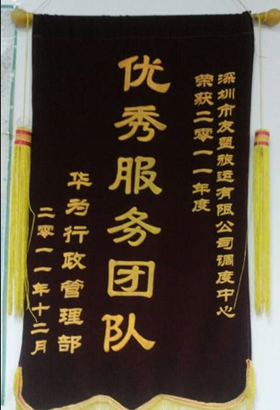 深圳市友盟旅运有限公司调度中心
荣获二零一一年度
优秀服务团队
华为行政管理部
二零一一年十二月